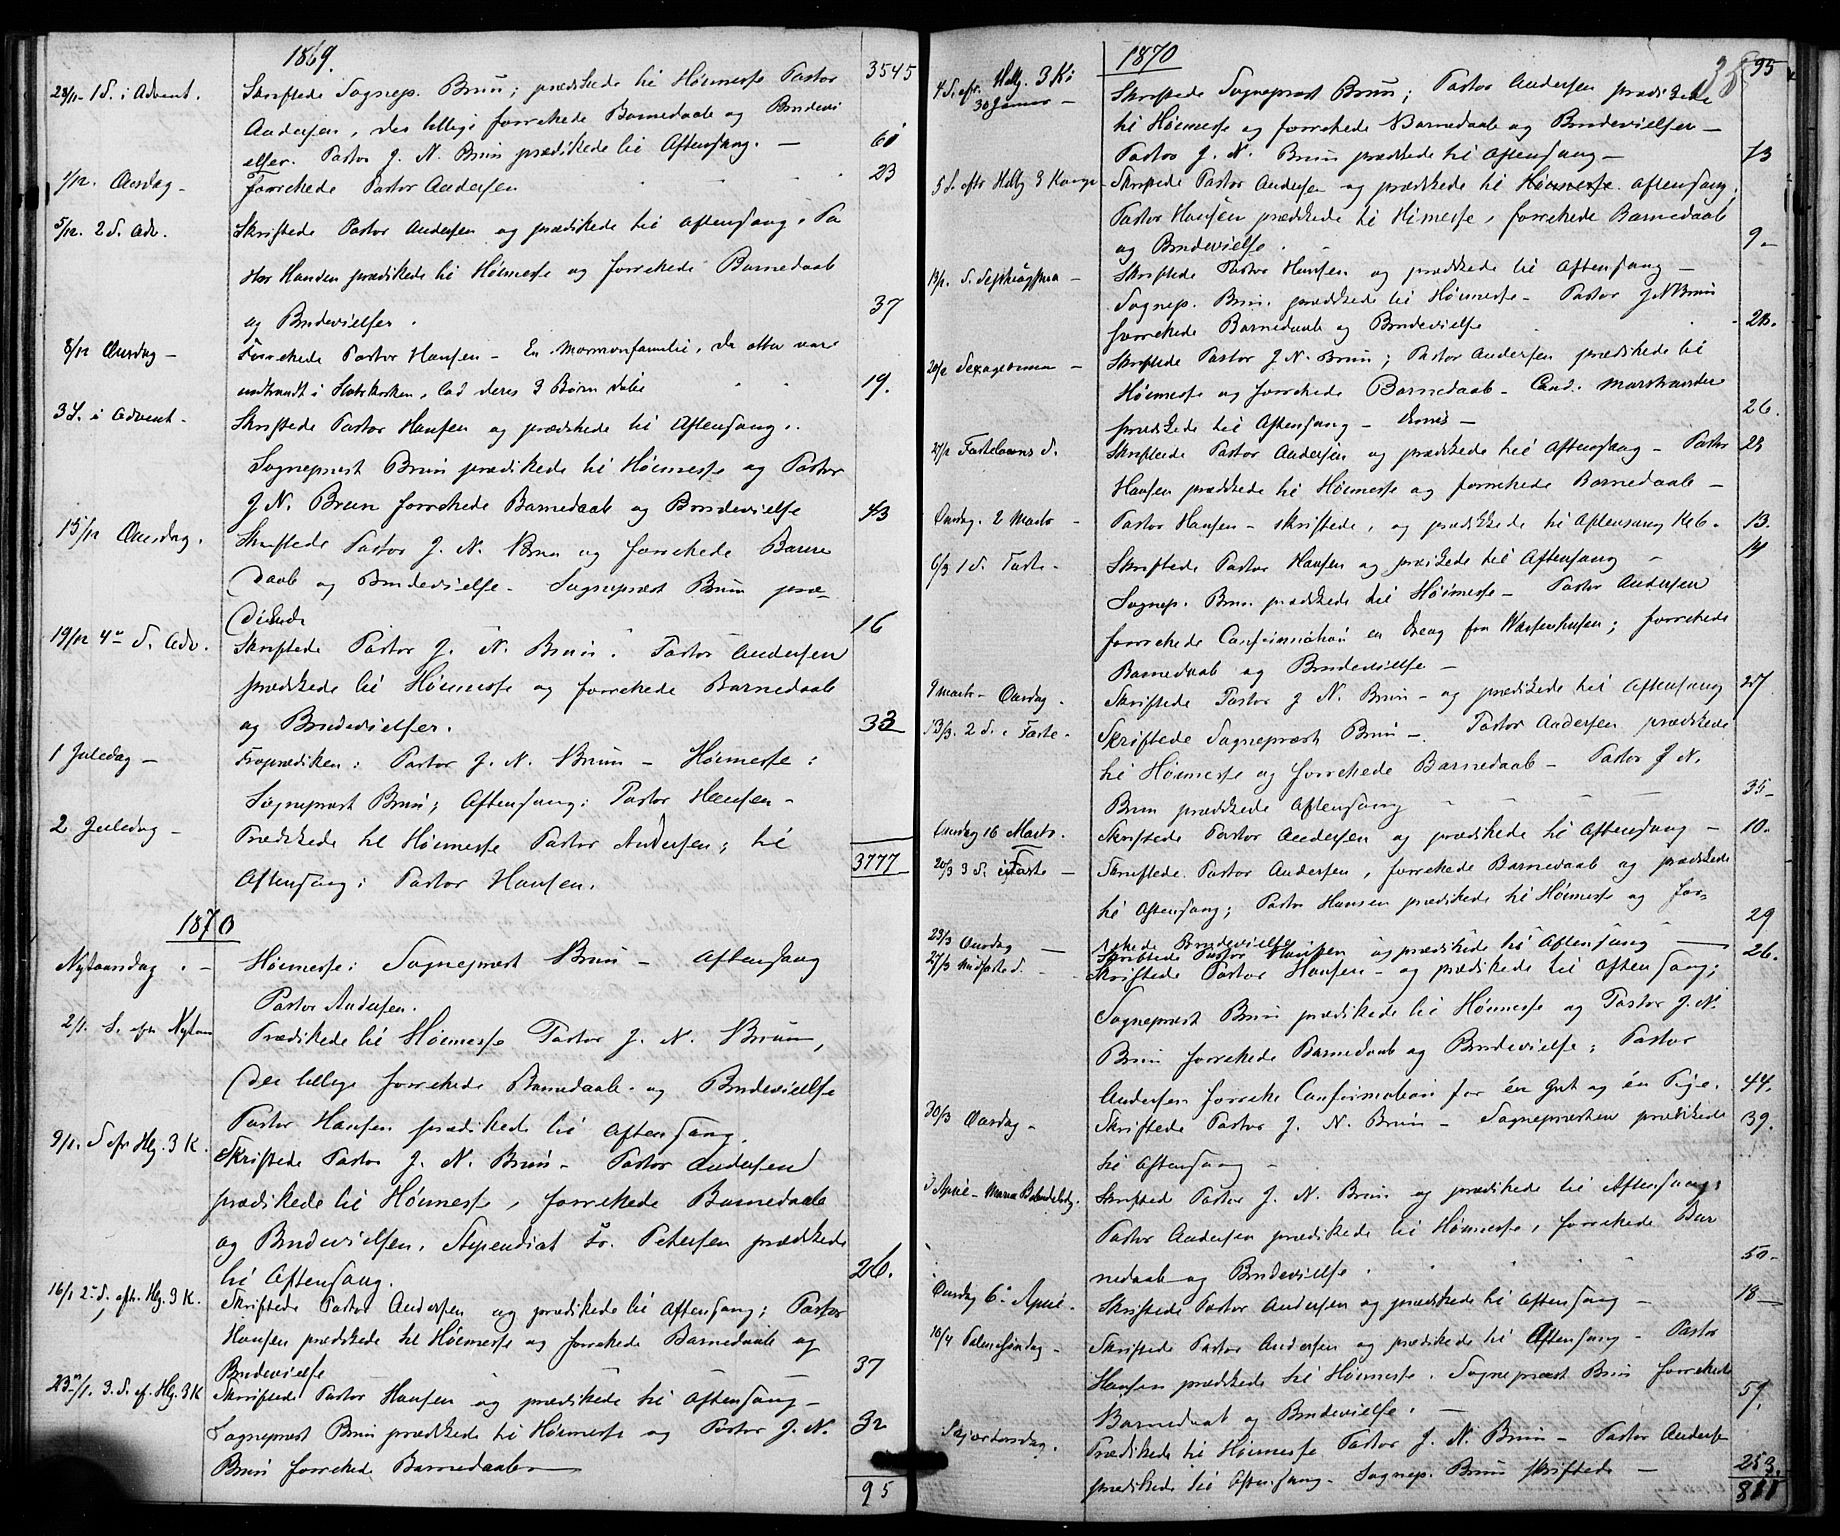 1869.
3545
28/11 - 1 S. i Advent. Skriftede Sognep. Brun; prædikede til Høimesse Pastor
Andersen, der tillige forrettede Barnedaab og Brudevi
elser. Pastor J. N. Brun prædikede til Aftensang. — 61
1/12. Onsdag - Forrettede Pastor Andersen 23
5/12. 2 S. Adv. Skriftede Pastor Andersen og prædikede til Aftensang. Pa
stor Hansen prædikede til Høimesse og forrettede Barnedaab
og Brudevielser. 37
8/12 Onsdag - Forrettede Pastor Hansen - En Mormonfamilie, der atter vare
indtraadt i Statskirken, lod deres 3 Børn døbe 19.
3 S. i Advent - Skriftede Pastor Hansen og prædikede til Aftensang.
Sognepræst Brun prædikede til Høimesse og Pastor
J. N. Brun forrettede Barnedaab og Brudevielse 43
15/12 Onsdag. Skriftede Pastor J. N. Brun og forrettede Barne
daab og Brudevielse. Sognepræst Brun præ-
dikede 16
19/12 4de S. Adv. Skriftede Pastor J. N. Brun. Pastor Andersen
prædikede til Høimesse og forrettede Barnedaab
og Brudevielser. 33
1 Juledag - Froprædiken: Pastor J. N. Brun - Høimesse:
Sognepræst Brun; Aftensang: Pastor Hansen -
2 Juledag - Prædikede til Høimesse Pastor Andersen; til
3777
Aftensang: Pastor Hansen.
1870
Nytaarsdag. - Høimesse: Sognepræst Brun - Aftensang
Pastor Andersen.
2/1. S. efter Nytaar Prædikede til Høimesse Pastor J. N. Brun,
der tillige forrettede Barnedaab og Brudevielse
Pastor Hansen prædikede til Aftensang.
9/1. S. efr Hlg. 3 K. Skriftede Pastor J. N. Brun - Pastor Andersen
prædikede til Høimesse, forrettede Barnedaab
og Brudevielsen, Stipendiat Fr. Petersen prædikede
til Aftensang. 26.
16/1 2n S. eftr. Hlg. 3 K. Skriftede Pastor Andersen og prædikede til Aftensang: Pastor
Hansen prædikede til Høimesse og forrettede Barnedaab og
Brudevielse 37
23/1. 3. S. ef. Hlg. 3 K Skriftede Pastor Hansen og prædikede til Aftensang -
Sognepræst Brun prædikede til Høimesse og Pastor J. N. 32
Brun forrettede Barnedaab —
95
1870
95
4 S. efr. Hellg. 3 Ko
30 Januar - Skriftede Sognepræst Brun; Pastor Andersen prædikede
til Høimesse og forrettede Barnedaab og Brudevielsen -
Pastor J. N. Brun prædikede til Aftensang - 73
5 S. eftr Hellg 3 Konge - Skriftede Pastor Andersen og prædikede til Aftensang.
Pastor Hansen prædikede til Høimesse, forrettede Barnedaab
og Brudevielse. 9 -
13/2. S. Septuagesima - Skriftede Pastor Hansen og prædikede til Aftensang -
Sognep. Brun prædikede til Høimesse - Pastor J N Brun
forrettede Barnedaab og Brudevielse 28.
20/2 Sexagesima - Skriftede Pastor J. N. Brun; Pastor Andersen prædikede til
Høimesse og forrettede Barnedaab - Cand. Marstrander
prædikede til Aftensang - 26.
27/2 Fastelavns S. Skriftede Pastor Andersen og prædikede til Aftensang - Pastor 23
Hansen prædikede til Høimesse og forrettede Barnedaab -
Onsdag. 2 Marts - Pastor Hansen - skriftede, og prædikede til Aftensang 13.
6/3 1 S. Faste - Skriftede Pastor Hansen og prædikede til Aftensang - 14
Sognep. Brun prædikede til Høimesse - Pastor Andersen
forrettede Confirmation en Dreng fra Waisenhusen; forrettede
Barnedaab og Brudevielse -
9 Marts - Onsdag. Skriftede Pastor J. N. Brun - og prædikede til Aftensang 27
13/3. 2 S. i Faste - Skriftede Sognepræst Brun -. Pastor Andersen prædikede
til Høimesse og forrettede Barnedaab - Pastor J. N.
Brun prædikede Aftensang 35 -
Onsdag 16 Marts. Skriftede Pastor Andersen og prædikede til Aftensang - 10.
20/3 3 S. i Faste - Skriftede Pastor Andersen, forrettede Barnedaab og prædikede
til Aftensang; Pastor Hansen prædikede til Høimesse og for-
rettede Brudevielse 29
23/3 Onsdag — Skriftede Pastor Hansen og prædikede til Aftensang — 26.
27/3 Midfaste S. - Skriftede Pastor Hansen - og prædikede til Aftensang;
Sognepræst Brun prædikede til Høimesse og Pastor J. N.
Brun forrettede Barnedaab og Brudevielse; Pastor
Andersen forrette Confirmation for én Gut og én Pige. 44.
30/3 Onsdag - Skriftede Pastor J. N. Brun - Sognepræsten prædikede 39.
til Aftensang -
3 April - Maria Bebudelsdg. Skriftede Pastor J. N. Brun og prædikede til Aftensang;
Pastor Andersen prædikede til Høimesse, forrettede Bar
nedaab og Brudevielse. 50 -
Onsdag 6te April. Skriftede Pastor Andersen og prædikede til Aftensang - 18 —
10/4 Palmesøndag - Skriftede Pastor Andersen og prædikede til Aftensang - Pastor
Hansen prædikede til Høimesse. Sognepræst Brun forrettede
Barnedaab og Brudevielse. - 59.
Skjærtorsdag. Prædikede til Høimesse Pastor J. N. Brun - Pastor Anders
prædikede til Aftensang. Sognep. Brun skriftede — 253.
811